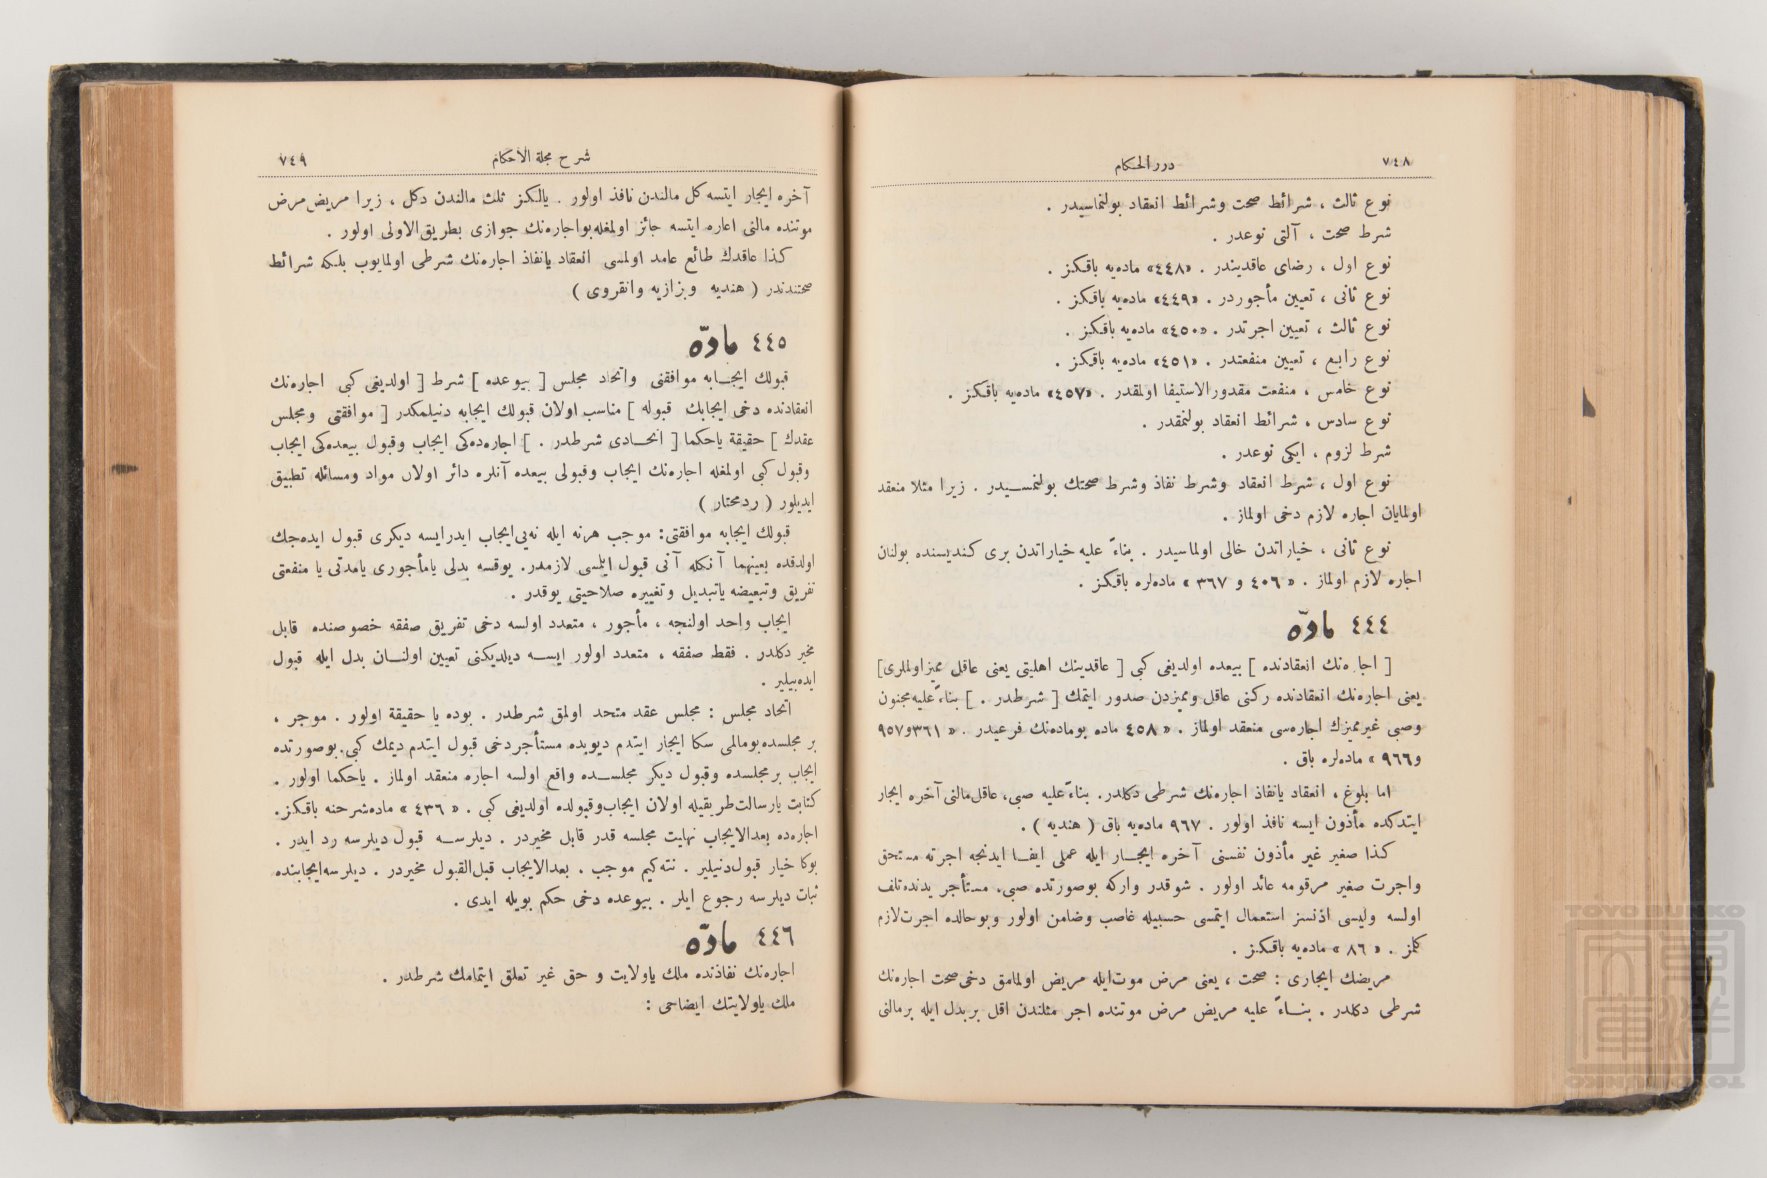 ٧٤٨
درر الحكام
نوع ثالث ، شرائط صحت وشرائط انعقاد بولنماسیدر .
شرط صحت ، آلتی نوعدر .
نوع اول ، رضای عاقدیندر . «٤٤٨» ماده‌یه باقكز .
نوع ثانی ، تعیین مأجوردر . «٤٤٩» ماده‌یه باقكز .
نوع ثالث ، تعیین اجرتدر . «٤٥٠» ماده‌یه باقكز .
نوع رابع ، تعیین منفعتدر . «٤٥١» ماده‌یه باقكز .
نوع خامس ، منفعت مقدورالاستیفا اولمقدر . «٤٥٧» ماده‌یه باقكز .
نوع سادس ، شرائط انعقاد بولنمقدر .
شرط لزوم ، ایكی نوعدر .
نوع اول ، شرط انعقاد وشرط نفاذ وشرط صحتك بولنمسیدر . زیرا مثلا منعقد
اولمایان اجاره لازم دخی اولماز .
نوع ثانی ، خیاراتدن خالی اولماسیدر . بناءً علیه خیاراتدن بری كندیسنده بولنان
اجاره لازم اولماز . « ٤٠٦ و ٣٦٧ » ماده‌لره باقكز .
٤٤٤ مادّه
[ اجاره‌نك انعقادنده ] بیعده اولدیغی كبی [ عاقدینك اهلیتی یعنی عاقل ممیزاولملری]
یعنی اجاره‌نك انعقادنده ركنی عاقل وممیزدن صدور ایتمك [ شرطدر . ] بناءً علیه مجنون
وصبی غیرممیزك اجاره‌سی منعقد اولماز . « ٤٥٨ ماده بوماده‌نك فرعیدر . « ٣٦١و٩٥٧
و٩٦٦ » ماده‌لره باق .
اما بلوغ ، انعقاد یانفاذ اجاره‌نك شرطی دكلدر. بناءً علیه صبی، عاقل مالنی آخره ایجار
ایتدكده مأذون ایسه نافذ اولور . ٩٦٧ ماده‌یه باق ( هندیه ) .
كذا صغیر غیر مأذون نفسنی آخره ایجار ایله عملی ایفا ایدنجه اجرته مستحق
واجرت صغیر مرقومه عائد اولور . شوقدر واركه بوصورتده صبی، مستأجر یدنده‌تلف
اولسه ولیسی اذنسز استعمال ایتمسی حسبیله غاصب وضامن اولور وبوحالده اجرت‌لازم
كلمز . « ٨٦ » ماده‌یه باقكز .
مریضك ایجاری : صحت ، یعنی مرض موت‌ایله مریض اولمامق دخی‌صحت اجاره‌نك
شرطی دكلدر . بناءً علیه مریض مرض موتنده اجر مثلندن اقل بربدل ایله برمالنی
شرح مجلة الأحكام
٧٤٩
آخره ایجار ایتسه كل مالندن نافذ اولور . یالكز ثلث مالندن دكل ، زیرا مریض‌مرض
موتنده مالنی اعاره ایتسه جائز اولمغله‌بواجاره‌نك جوازی بطریق‌الاولی اولور .
كذا عاقدك طائع عامد اولمسی انعقاد یانفاذ اجاره‌نك شرطی اولمایوب بلكه شرائط
صحتندندر ( هندیه وبزازیه وانقروی )
٤٤٥ مادّه
قبولك ایجابه موافقتی واتحاد مجلس [ بیوعده ] شرط [ اولدیغی كبی اجاره‌نك
انعقادنده دخی ایجابك قبوله ] مناسب اولان قبولك ایجابه دنیلمكدر [ موافقتی ومجلس
عقدك ] حقیقة یاحكما [ اتحادی شرطدر . ] اجاره‌ده‌كی ایجاب وقبول بیعده‌كی ایجاب
وقبول كبی اولمغله اجاره‌نك ایجاب وقبولی بیعده آنلره دائر اولان مواد ومسائله تطبیق
ایدیلور ( ردمحتار )
قبولك ایجابه موافقتی: موجب هرنه ایله نه‌یی‌ایجاب ایدرایسه دیكری قبول ایده‌جك
اولدقده بعینهما آنكله آنی قبول ایلمسی لازمدر. یوقسه بدلی یامأجوری یامدتی یا منفعتی
تفریق وتبعیضه یاتبدیل وتغییره صلاحیتی یوقدر .
ایجاب واحد اولنجه ، مأجور ، متعدد اولسه دخی تفریق صفقه خصوصنده قابل
مخیر دكلدر . فقط صفقه ، متعدد اولور ایسه دیلدیكنی تعیین اولنان بدل ایله قبول
ایده‌بیلیر .
اتحاد مجلس : مجلس عقد متحد اولمق شرطدر . بوده یا حقیقة اولور . موجر ،
بر مجلسده‌بومالمی سكا ایجار ایتدم دیویده مستأجردخی قبول ایتدم دیمك كبی. بوصورتده
ایجاب برمجلسده وقبول دیكر مجلسده واقع اولسه اجاره منعقد اولماز . یاحكما اولور .
كتابت یارسالت‌طریقیله اولان ایجاب‌وقبولده اولدیغی كبی . « ٤٣٦ » ماده‌شرحنه باقكز.
اجاره‌ده بعدالایجاب نهایت مجلسه قدر قابل مخیردر . دیلرسه قبول دیلرسه رد ایدر .
بوكا خیار قبول‌دنیلیر . نته‌كیم موجب . بعدالایجاب قبل‌القبول مخیردر . دیلرسه‌ایجابنده
ثبات دیلرسه رجوع ایلر . بیوعده دخی حكم بویله ایدی .
٤٤٦ مادّه
اجاره‌نك نفاذنده ملك یاولایت و حق غیر تعلق ایتمامك شرطدر .
ملك یاولایتك ایضاحی :
TOYO BUNKO